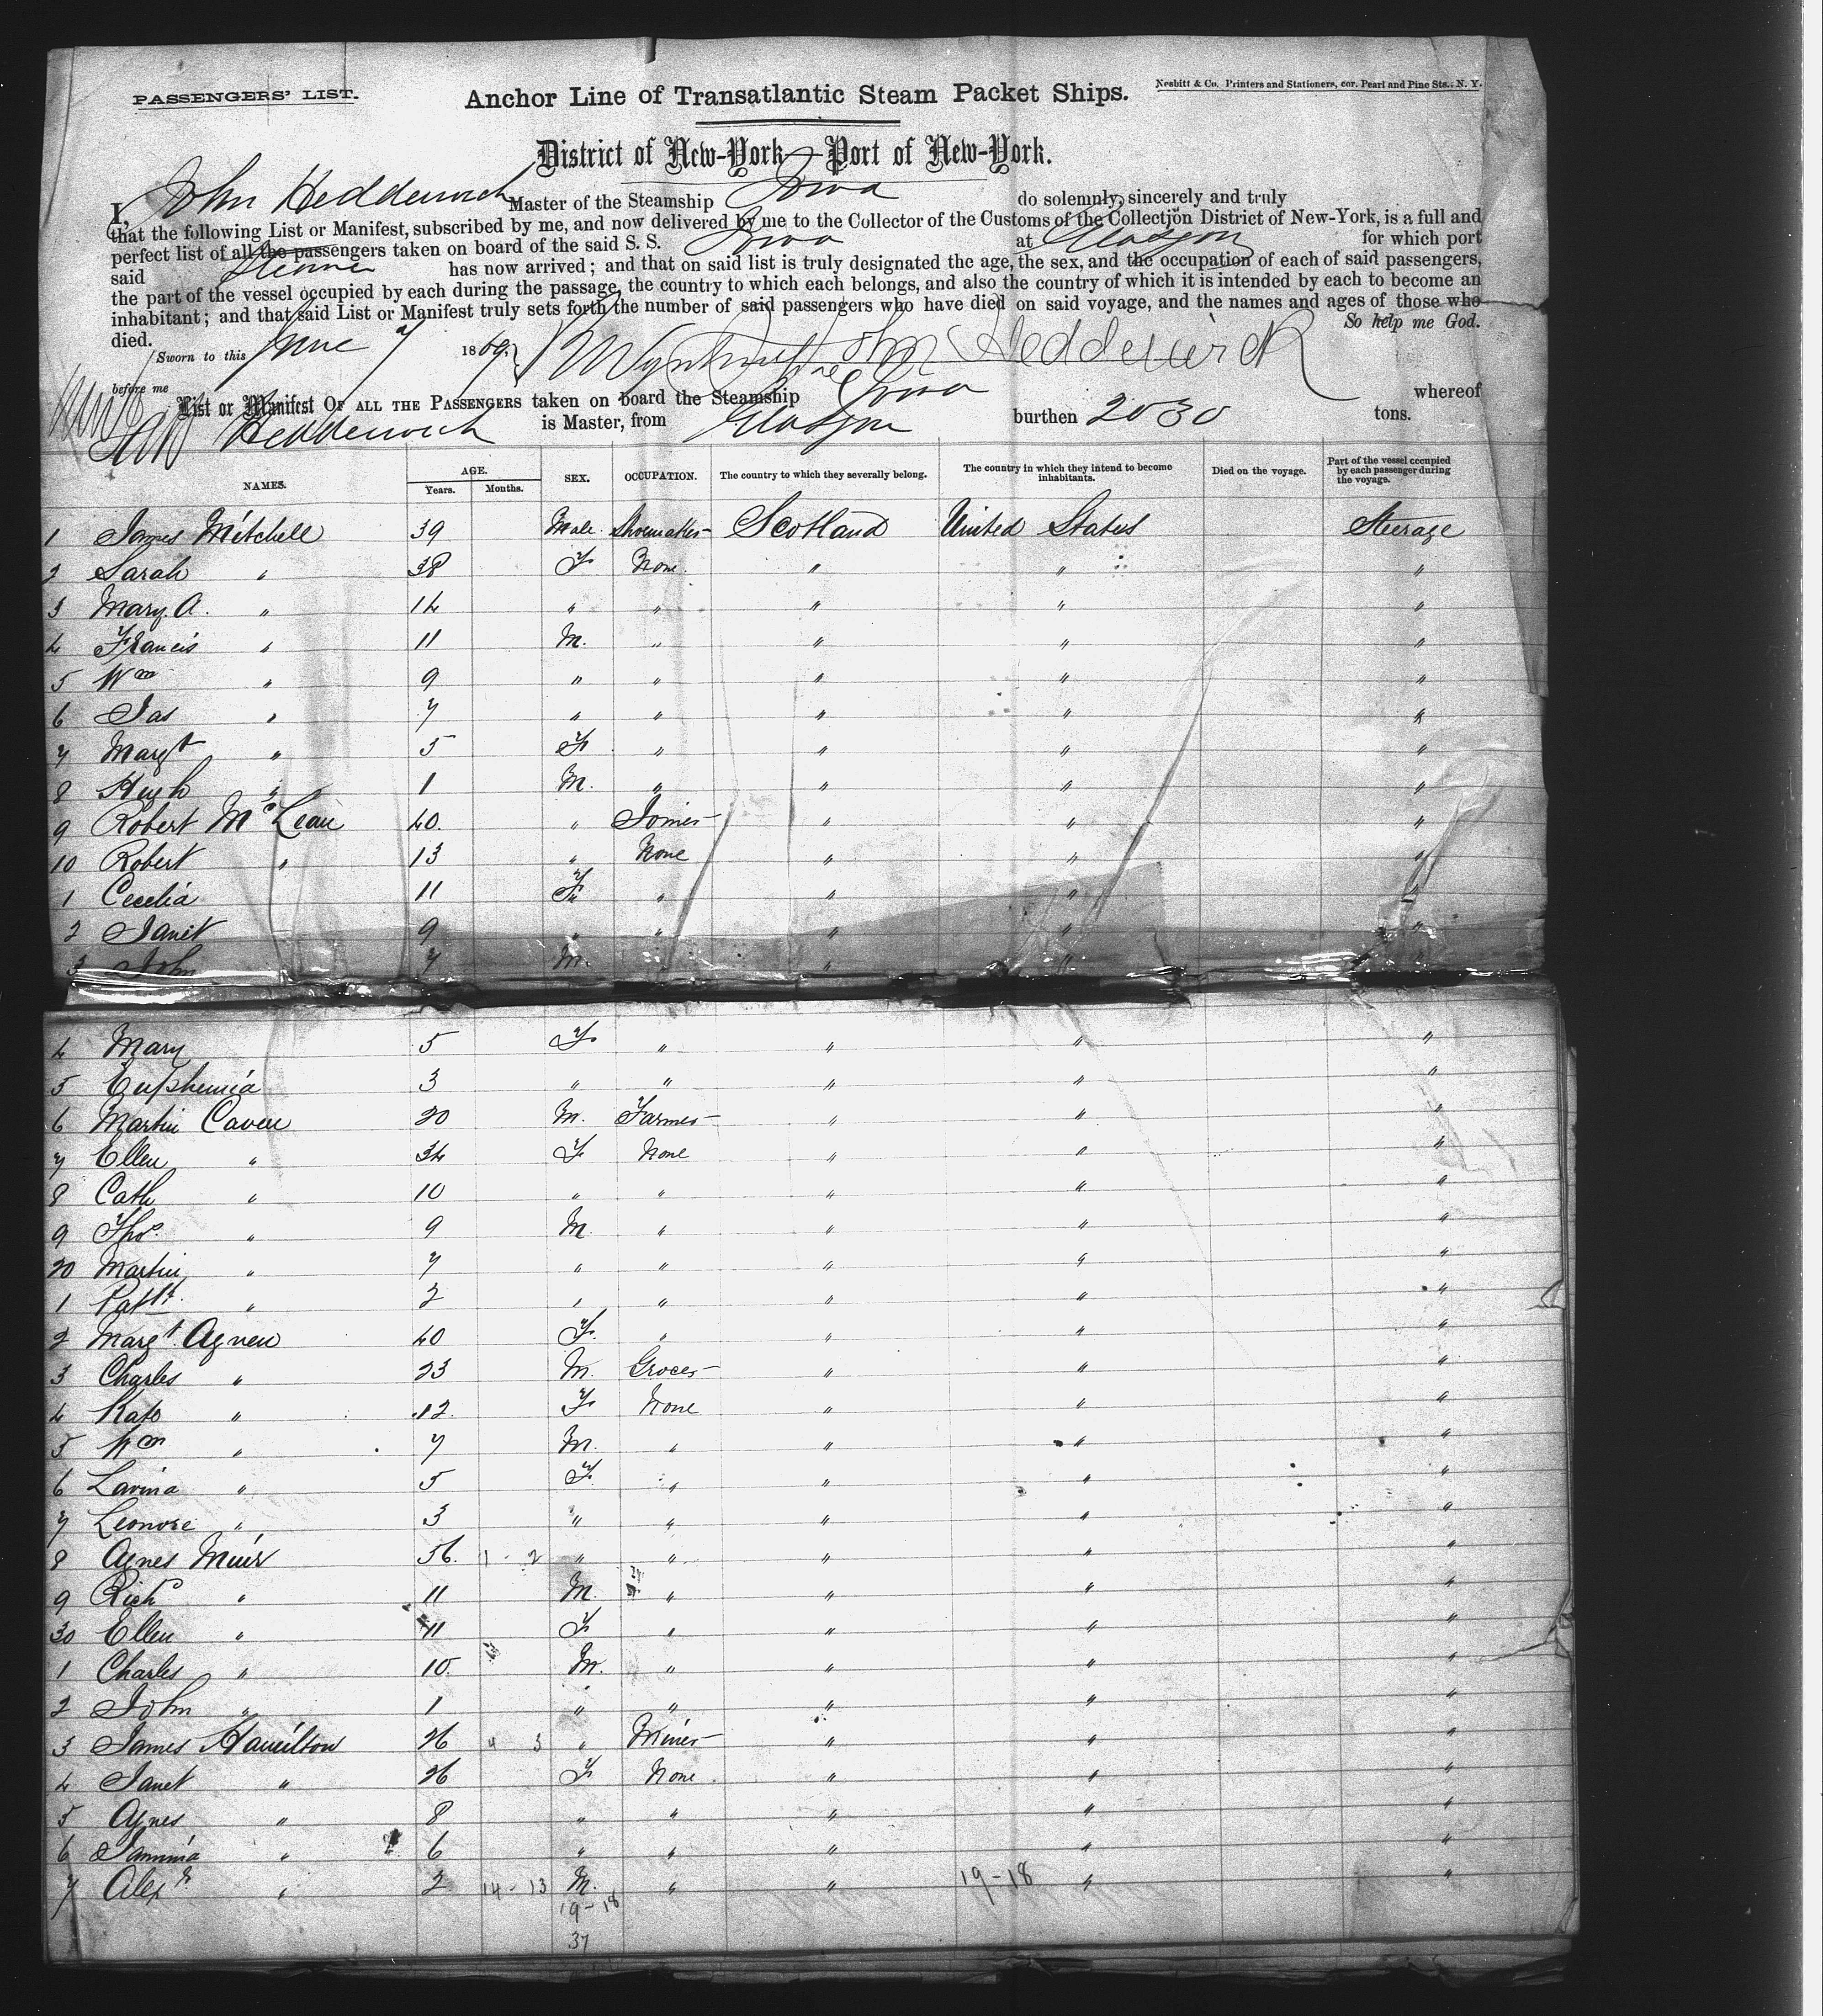 PASSENGERS' LIST.
Anchor Line of Transatlantic Steam Packet Ships.
Nesbitt & Co. Printers and Stationers, cor. Pearl and Pine Sts., N. Y.
District of New-York—Port of New-York.
I, John Hedderwick Master of the Steamship Iowa do solemnly, sincerely and truly
that the following List or Manifest, subscribed by me, and now delivered by me to the Collector of the Customs of the Collection District of New-York, is a full and
perfect list of all the passengers taken on board of the said S. S. Iowa at Glasgow for which port
said Steamer has now arrived; and that on said list is truly designated the age, the sex, and the occupation of each of said passengers,
the part of the vessel occupied by each during the passage, the country to which each belongs, and also the country of which it is intended by each to become an
inhabitant; and that said List or Manifest truly sets forth the number of said passengers who have died on said voyage, and the names and ages of those who
died. So help me God.
Sworn to this June 7 1869. John Hedderwick
before me
List or Manifest OF ALL THE PASSENGERS taken on board the Steamship Iowa whereof
Hedderwick is Master, from Glasgow burthen 2030 tons.
NAMES. AGE. Years. Months. SEX. OCCUPATION. The country to which they severally belong. The country in which they intend to become inhabitants. Died on the voyage. Part of the vessel occupied by each passenger during the voyage.
1 James Mitchell 39 Male Shoemaker Scotland United States Steerage
2 Sarah " 38 F None " " "
3 Mary A. " 14 " " " " "
4 Francis " 11 M. " " " "
5 Wm " 9 " " " " "
6 Jas " 7 " " " " "
7 Margt " 5 F " " " "
8 Hugh " 1 M. " " " "
9 Robert McLean 40. " Joiner " " "
10 Robert " 13 " None " " "
1 Cecelia 11 F " " " "
2 Janet 9 " " " " "
3 John 7 M. " " "
4 Mary 5 F " " " "
5 Euphemia 3 " " " " "
6 Martin Caven 20 M. Farmer " " "
7 Ellen " 34 F None " " "
8 Cath " 10 " " " " "
9 Thos. " 9 M. " " " "
20 Martin " 7 " " " " "
1 Patk. " 2 " " " " "
2 Margt. Agnew 40 F. " " " "
3 Charles " 23 M. Grocer " " "
4 Kate " 12. F None " " "
5 Wm " 7 M. " " " "
6 Lavina " 5 F " " " "
7 Leonore " 3 " " " " "
8 Agnes Muir 36. 1 - 2 " " " " "
9 Richd " 11 M. " " " "
30 Ellen " 11 F " " " "
1 Charles " 10. M. " " " "
2 John " 1 " " " " "
3 James Hamilton 26 4 3 " Miner " " "
4 Janet " 26 F None " " "
5 Agnes " 8 " " " " "
6 Jamima " 6 " " " " "
7 Alexr. " 2 14 - 13 M. " " 19-18 " "
19-18
37